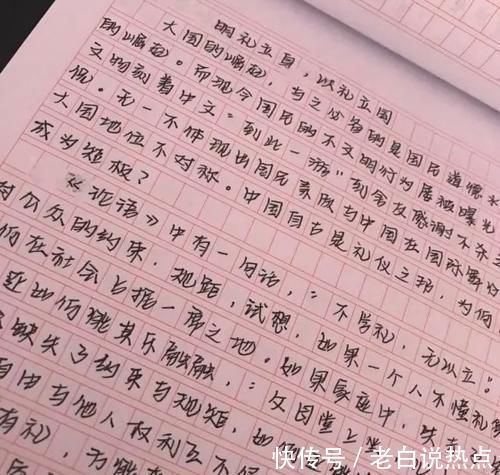 明礼立身，以礼立国
大国的崛起，与之必备的是国民道德水
的崛起。而现今国民的不文明行为屡被曝光
文物刻着中文"到此一游"
低。无一不体现出国民素质与中国在国际舞台
大国地位不对称。中国自古是礼仪之邦，为何
成为短板？
《论语》中有一句话，："不学礼，无以立。
对公众的约束，规距，试想，如果一个人不懂礼
何在社会占据一席之地。如果家庭中，失
如何能其乐融融，：父母堂上坐
缺失了约束与规矩，如
自由与他人权利互不
有礼，方能
快传号／老白说热点